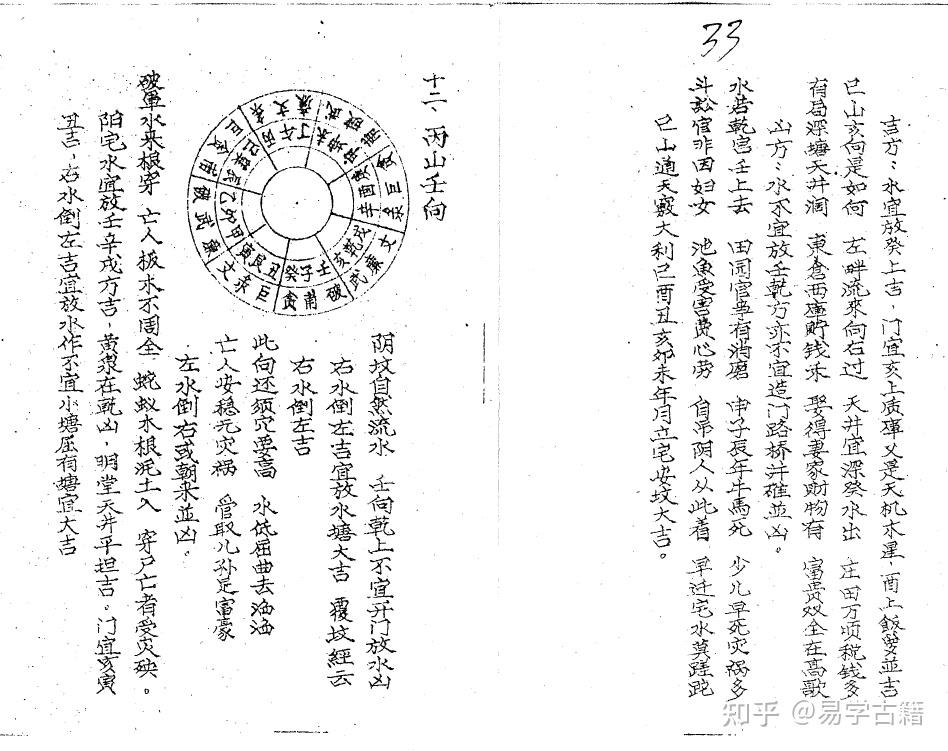 33
吉方：水宜放癸上吉，门宜亥上质库又是天机木星，酉上飯箩並吉
巳山亥向是如何　左畔流來向右过　天井宜深癸水出　庄田万顷税钱多
有局深塘天井润　東倉西庫貯钱禾　娶得妻家财物有　富贵双全在高歌
凶方：水不宜放壬乾方亦不宜造门路桥井碓並凶。
水若乾宫壬上去　田园官亭有消磨　申子辰年牛馬死　少儿早死灾祸多
斗訟官非因妇女　池魚受害费心劳　自吊阴人从此着　早迁宅水莫蹉跎
巳山通天竅大利巳酉丑亥卯未年月立宅安坟大吉。
十二、丙山壬向
阴坟自然流水　壬向乾上不宜开门放水凶
右水倒左吉宜放水塘大吉　覆坟經云
右水倒左吉
此向还须穴要高　水低屈曲去滔滔
亡人安穩无灾祸　管取儿孙足富豪
左水倒右或朝来並凶。
破軍水来根穿　亡人板木不周全　蛇蚁木根泥土入　穿尸亡者受灾殃。
阳宅水宜放壬辛戌方吉，黄泉在乾凶，明堂天井平坦吉。门宜亥寅
丑吉，右水倒左吉宜放水作不宜小塘屈有塘宜大吉
知乎 @易学古籍